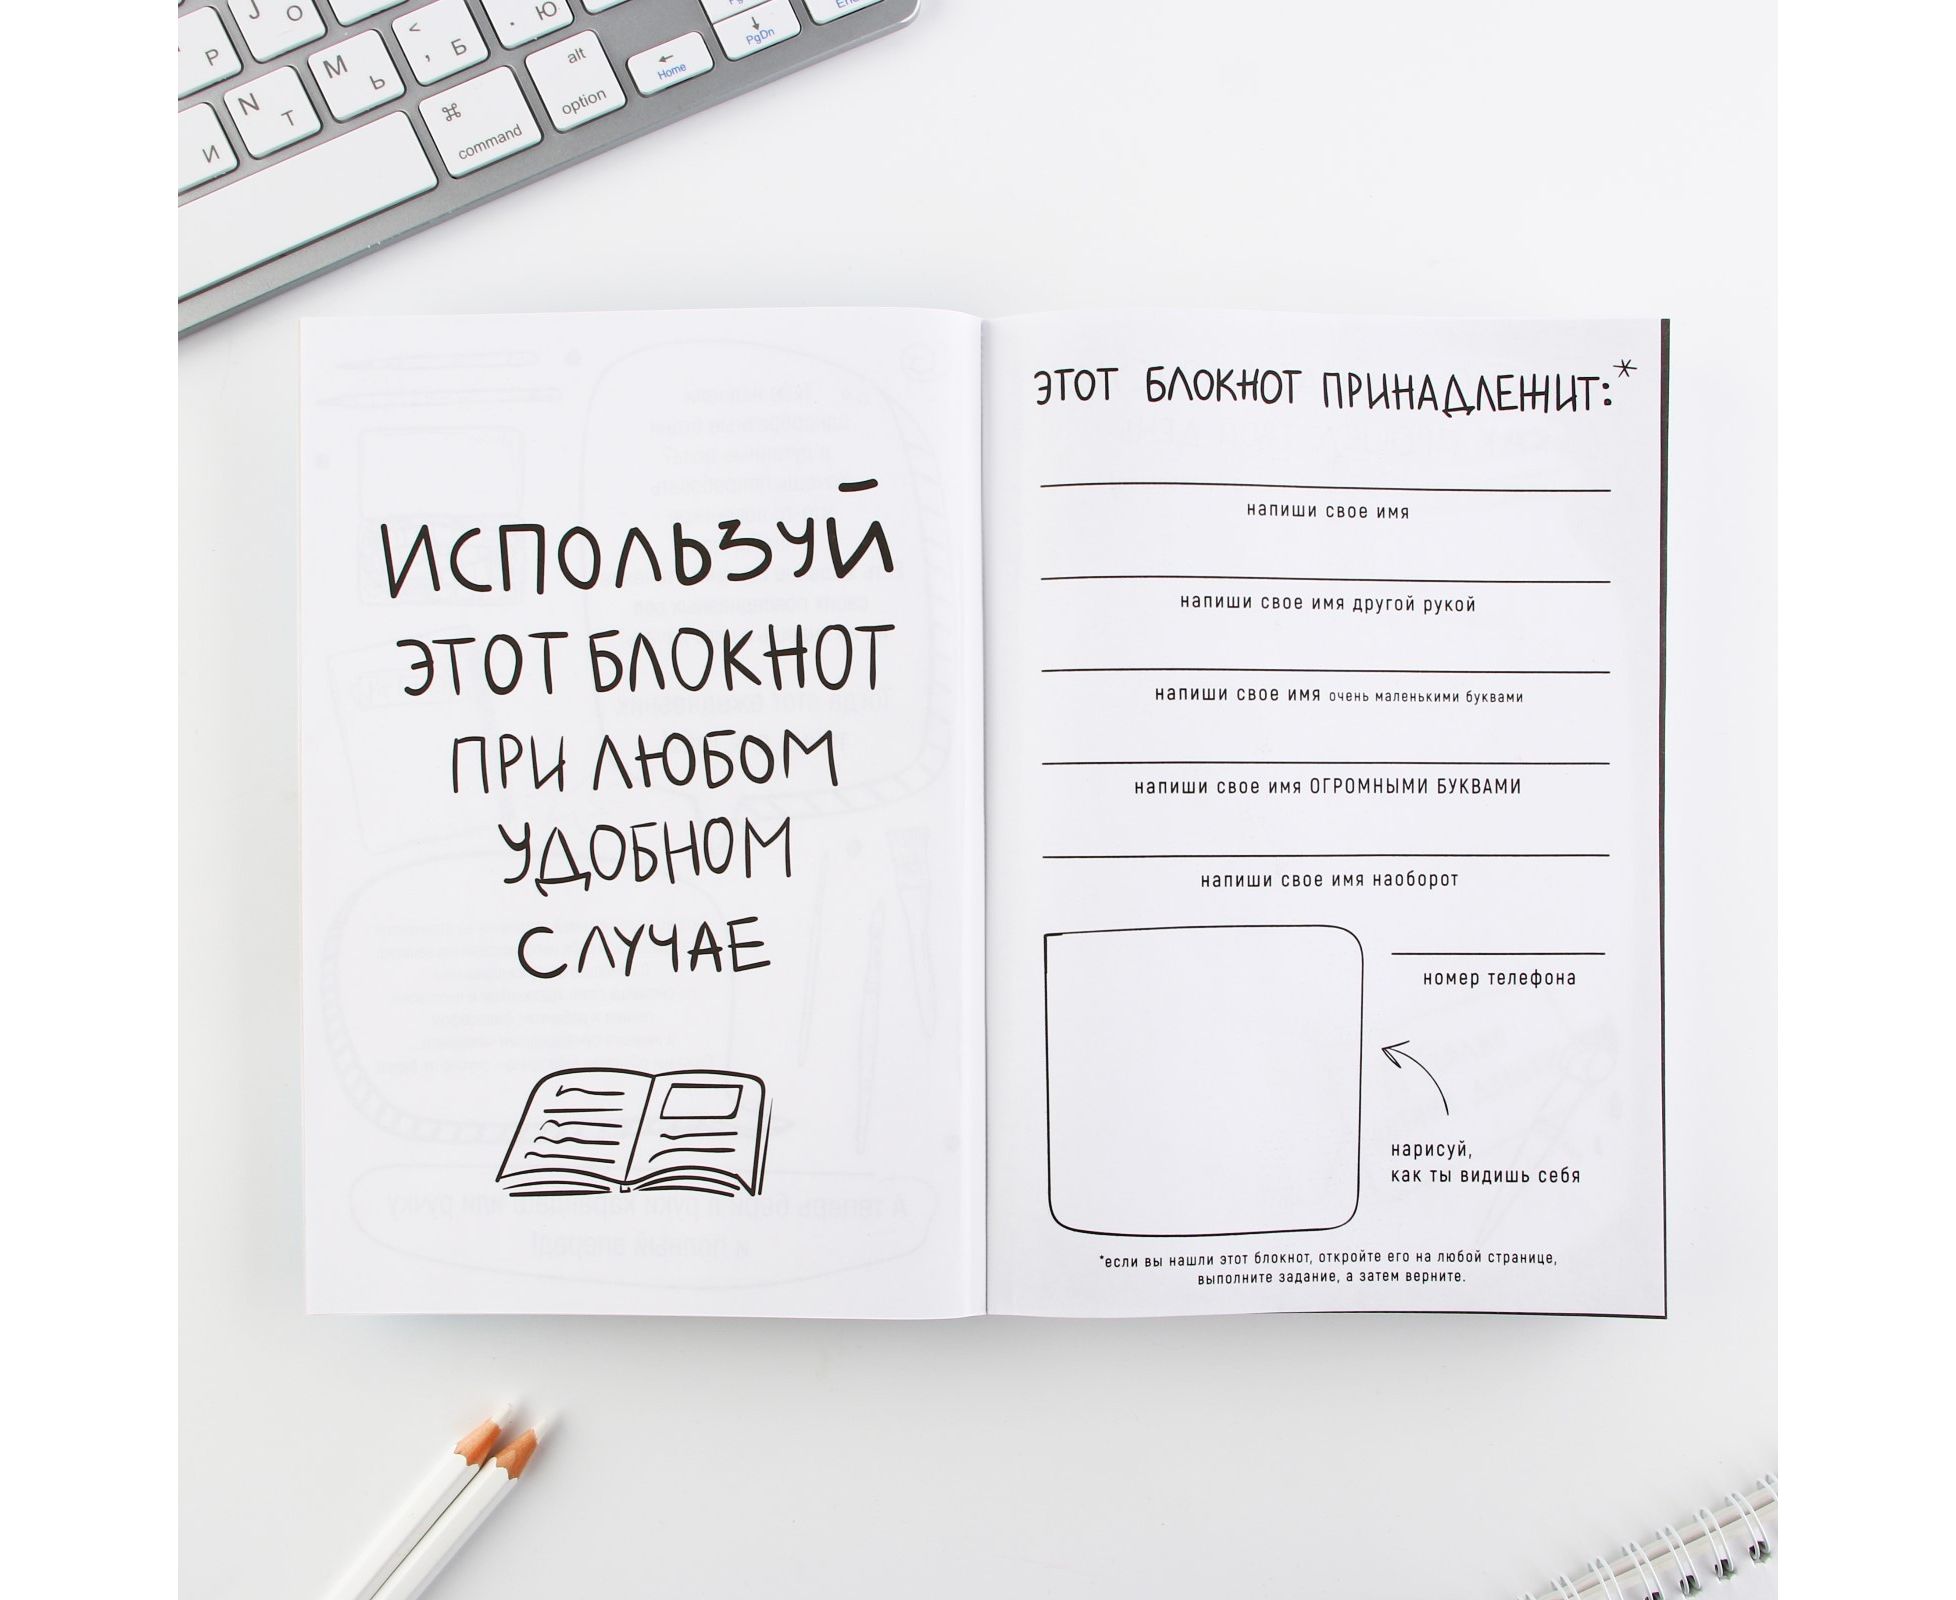 Р J О < , Б . Ю PgDn End
N Т M Ь ⌘ command alt option ← Home
И
ИСПОЛЬЗУЙ
ЭТОТ БЛОКНОТ
ПРИ ЛЮБОМ
УДОБНОМ
СЛУЧАЕ
ЭТОТ БЛОКНОТ ПРИНАДЛЕЖИТ:*
напиши свое имя
напиши свое имя другой рукой
напиши свое имя очень маленькими буквами
напиши свое имя ОГРОМНЫМИ БУКВАМИ
напиши свое имя наоборот
номер телефона
нарисуй,
как ты видишь себя
*если вы нашли этот блокнот, откройте его на любой странице,
выполните задание, а затем верните.